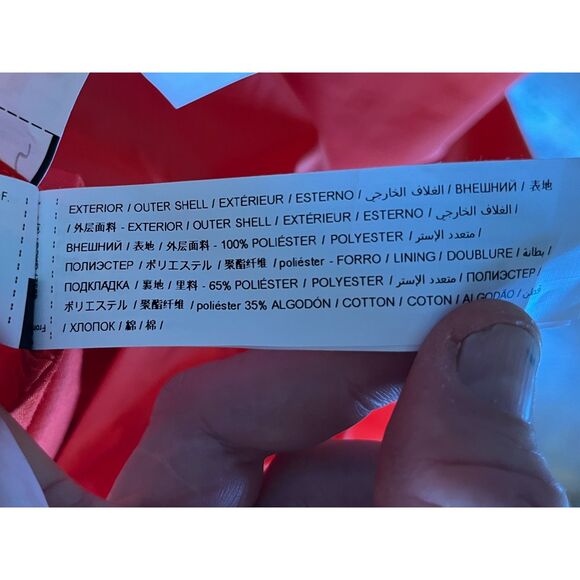 OF.
EXTERIOR / OUTER SHELL / EXTÉRIEUR / ESTERNO / الغلاف الخارجي / ВНЕШНИЙ / 表地
/ 外层面料 - EXTERIOR / OUTER SHELL / EXTÉRIEUR / ESTERNO / الغلاف الخارجي /
ВНЕШНИЙ / 表地 / 外层面料 - 100% POLIÉSTER / POLYESTER / متعدد الإستر /
ПОЛИЭСТЕР / ポリエステル / 聚酯纤维 / poliéster - FORRO / LINING / DOUBLURE / بطانة /
ПОДКЛАДКА / 裏地 / 里料 - 65% POLIÉSTER / POLYESTER / متعدد الإستر / ПОЛИЭСТЕР /
ポリエステル / 聚酯纤维 / poliéster 35% ALGODÓN / COTTON / COTON / ALGODÃO / قطن
/ ХЛОПОК / 綿 / 棉 /